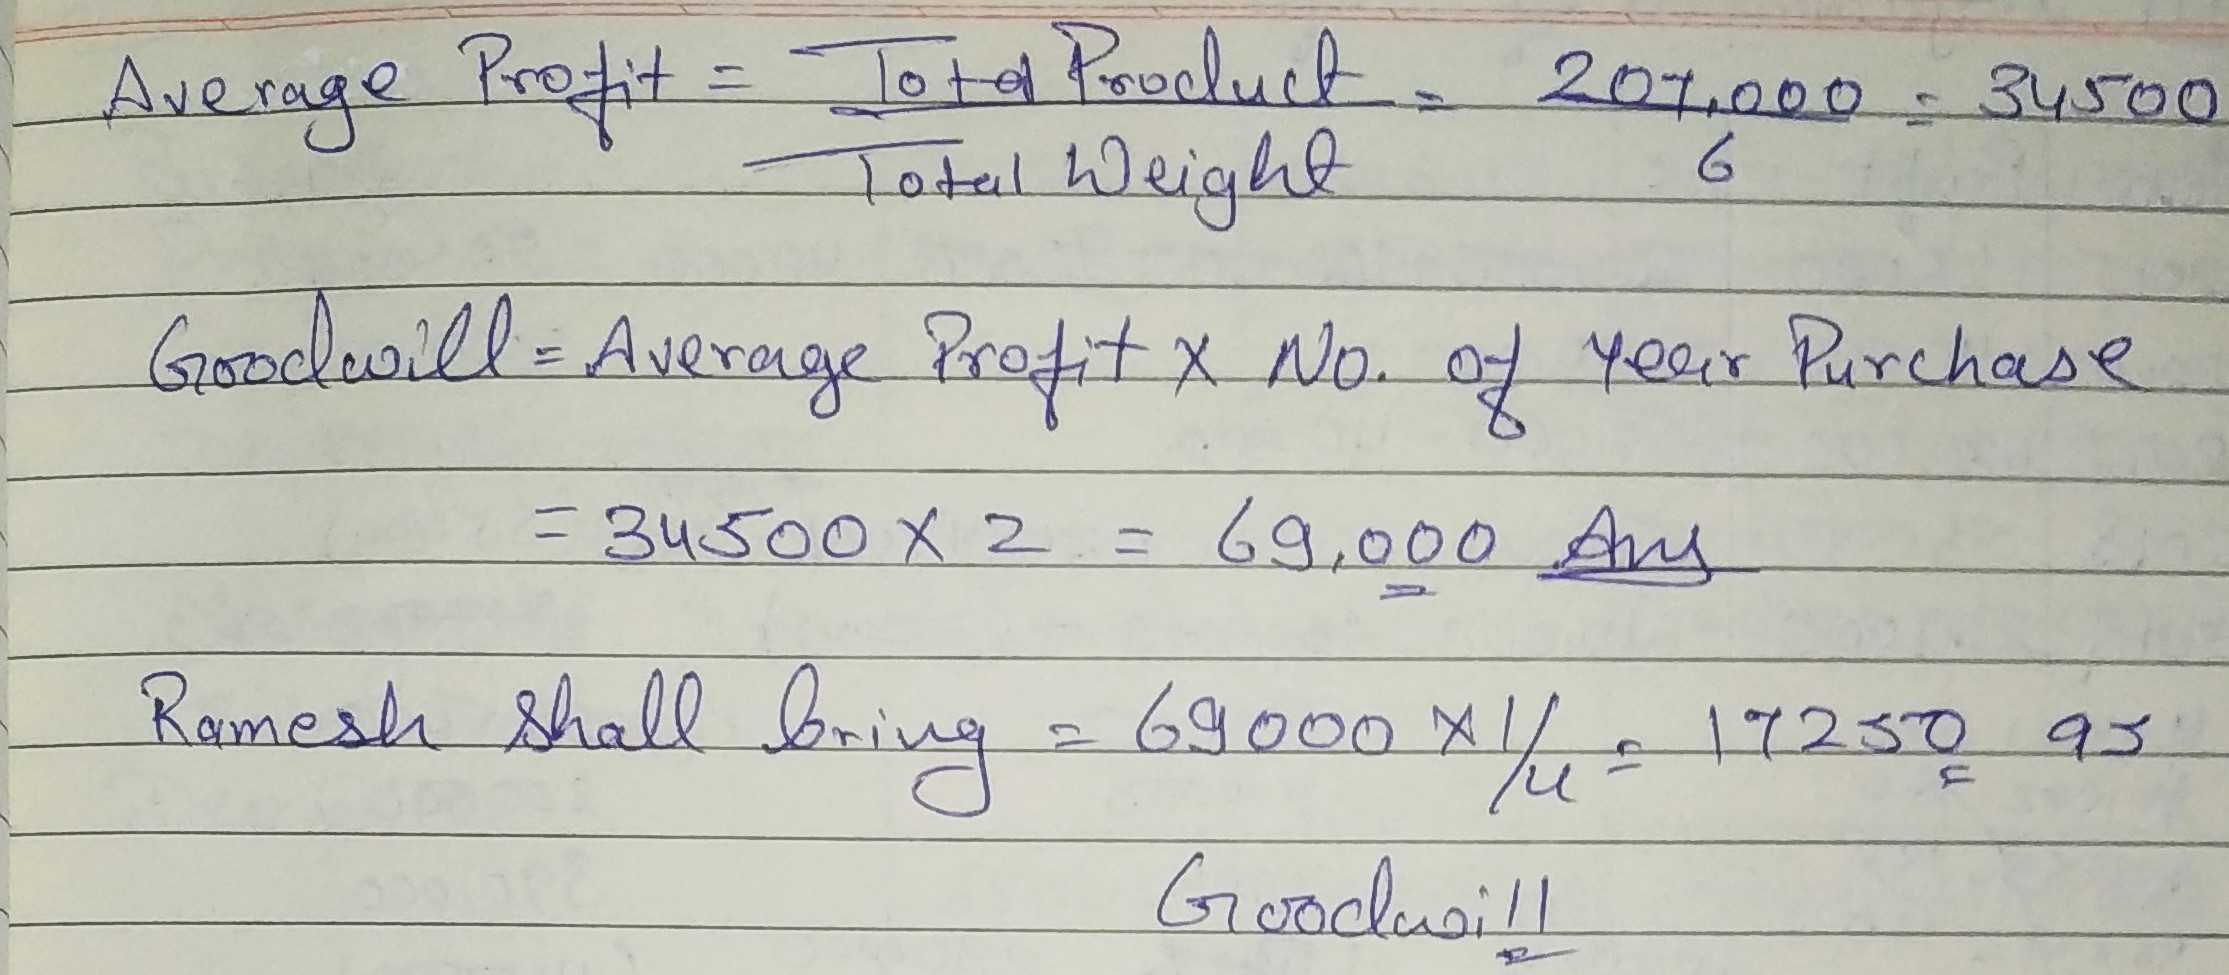 Average Profit = Total Product / Total Weight = 207,000 / 6 = 34500
Goodwill = Average Profit x No. of Year Purchase
= 34500 x 2 = 69,000 Ans
Ramesh shall bring = 69000 x 1/4 = 17250 as
Goodwill